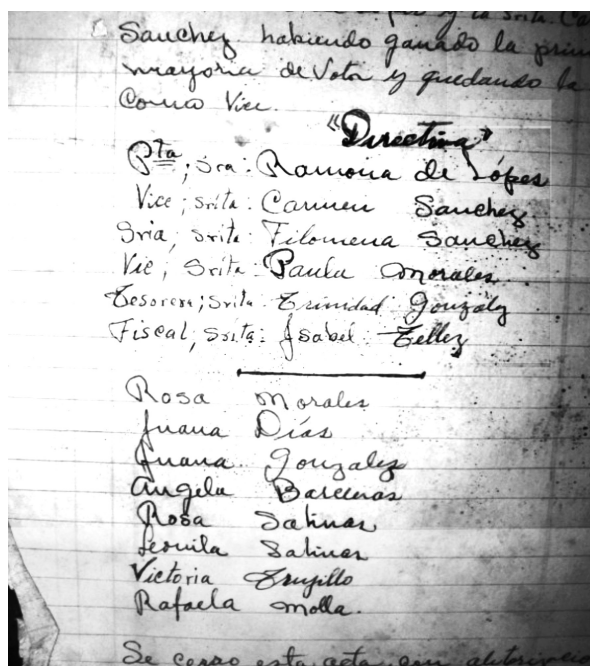 y la Srita. Ca
Sanchez habiendo ganado la prim
mayoria de Votos y quedando la
Como Vice.
"Directiva"
Pta; Sra: Ramona de Lópes
Vice; Srita: Carmen Sanchez
Sria; Srita: Filomena Sanchez
Vic; Srita: Paula Morales
Tesorera; Srita: Trinidad Gonzalez
Fiscal; Srita: Isabel Tellez
Rosa Morales
Juana Días
Juana Gonzalez
Angela Barcenas
Rosa Salinas
Leonila Salinas
Victoria Trujillo
Rafaela Molla.
Se cerro esta acta con